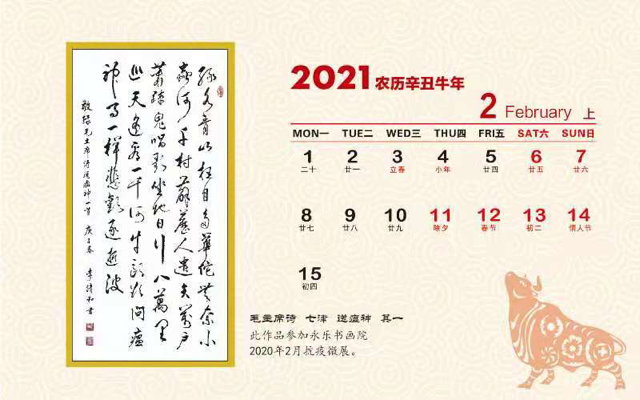 绿水青山枉自多華佗無奈小
蟲何千村薜荔人遺矢萬户
萧疏鬼唱歌坐地日行八萬里
巡天遥看一千河牛郎欲问瘟
神事一樣悲歡逐逝波
敬録毛主席诗送瘟神一首 庚子春
2021 农历辛丑牛年
2 February 上
MON一 TUE二 WED三 THU四 FRI五 SAT六 SUN日
1 2 3 4 5 6 7
二十 廿一 立春 小年 廿四 廿五 廿六
8 9 10 11 12 13 14
廿七 廿八 廿九 除夕 春节 初二 情人节
15
初四
毛主席诗 七津 送瘟神 其一
此作品参加永乐书画院
2020年2月抗疫微展。